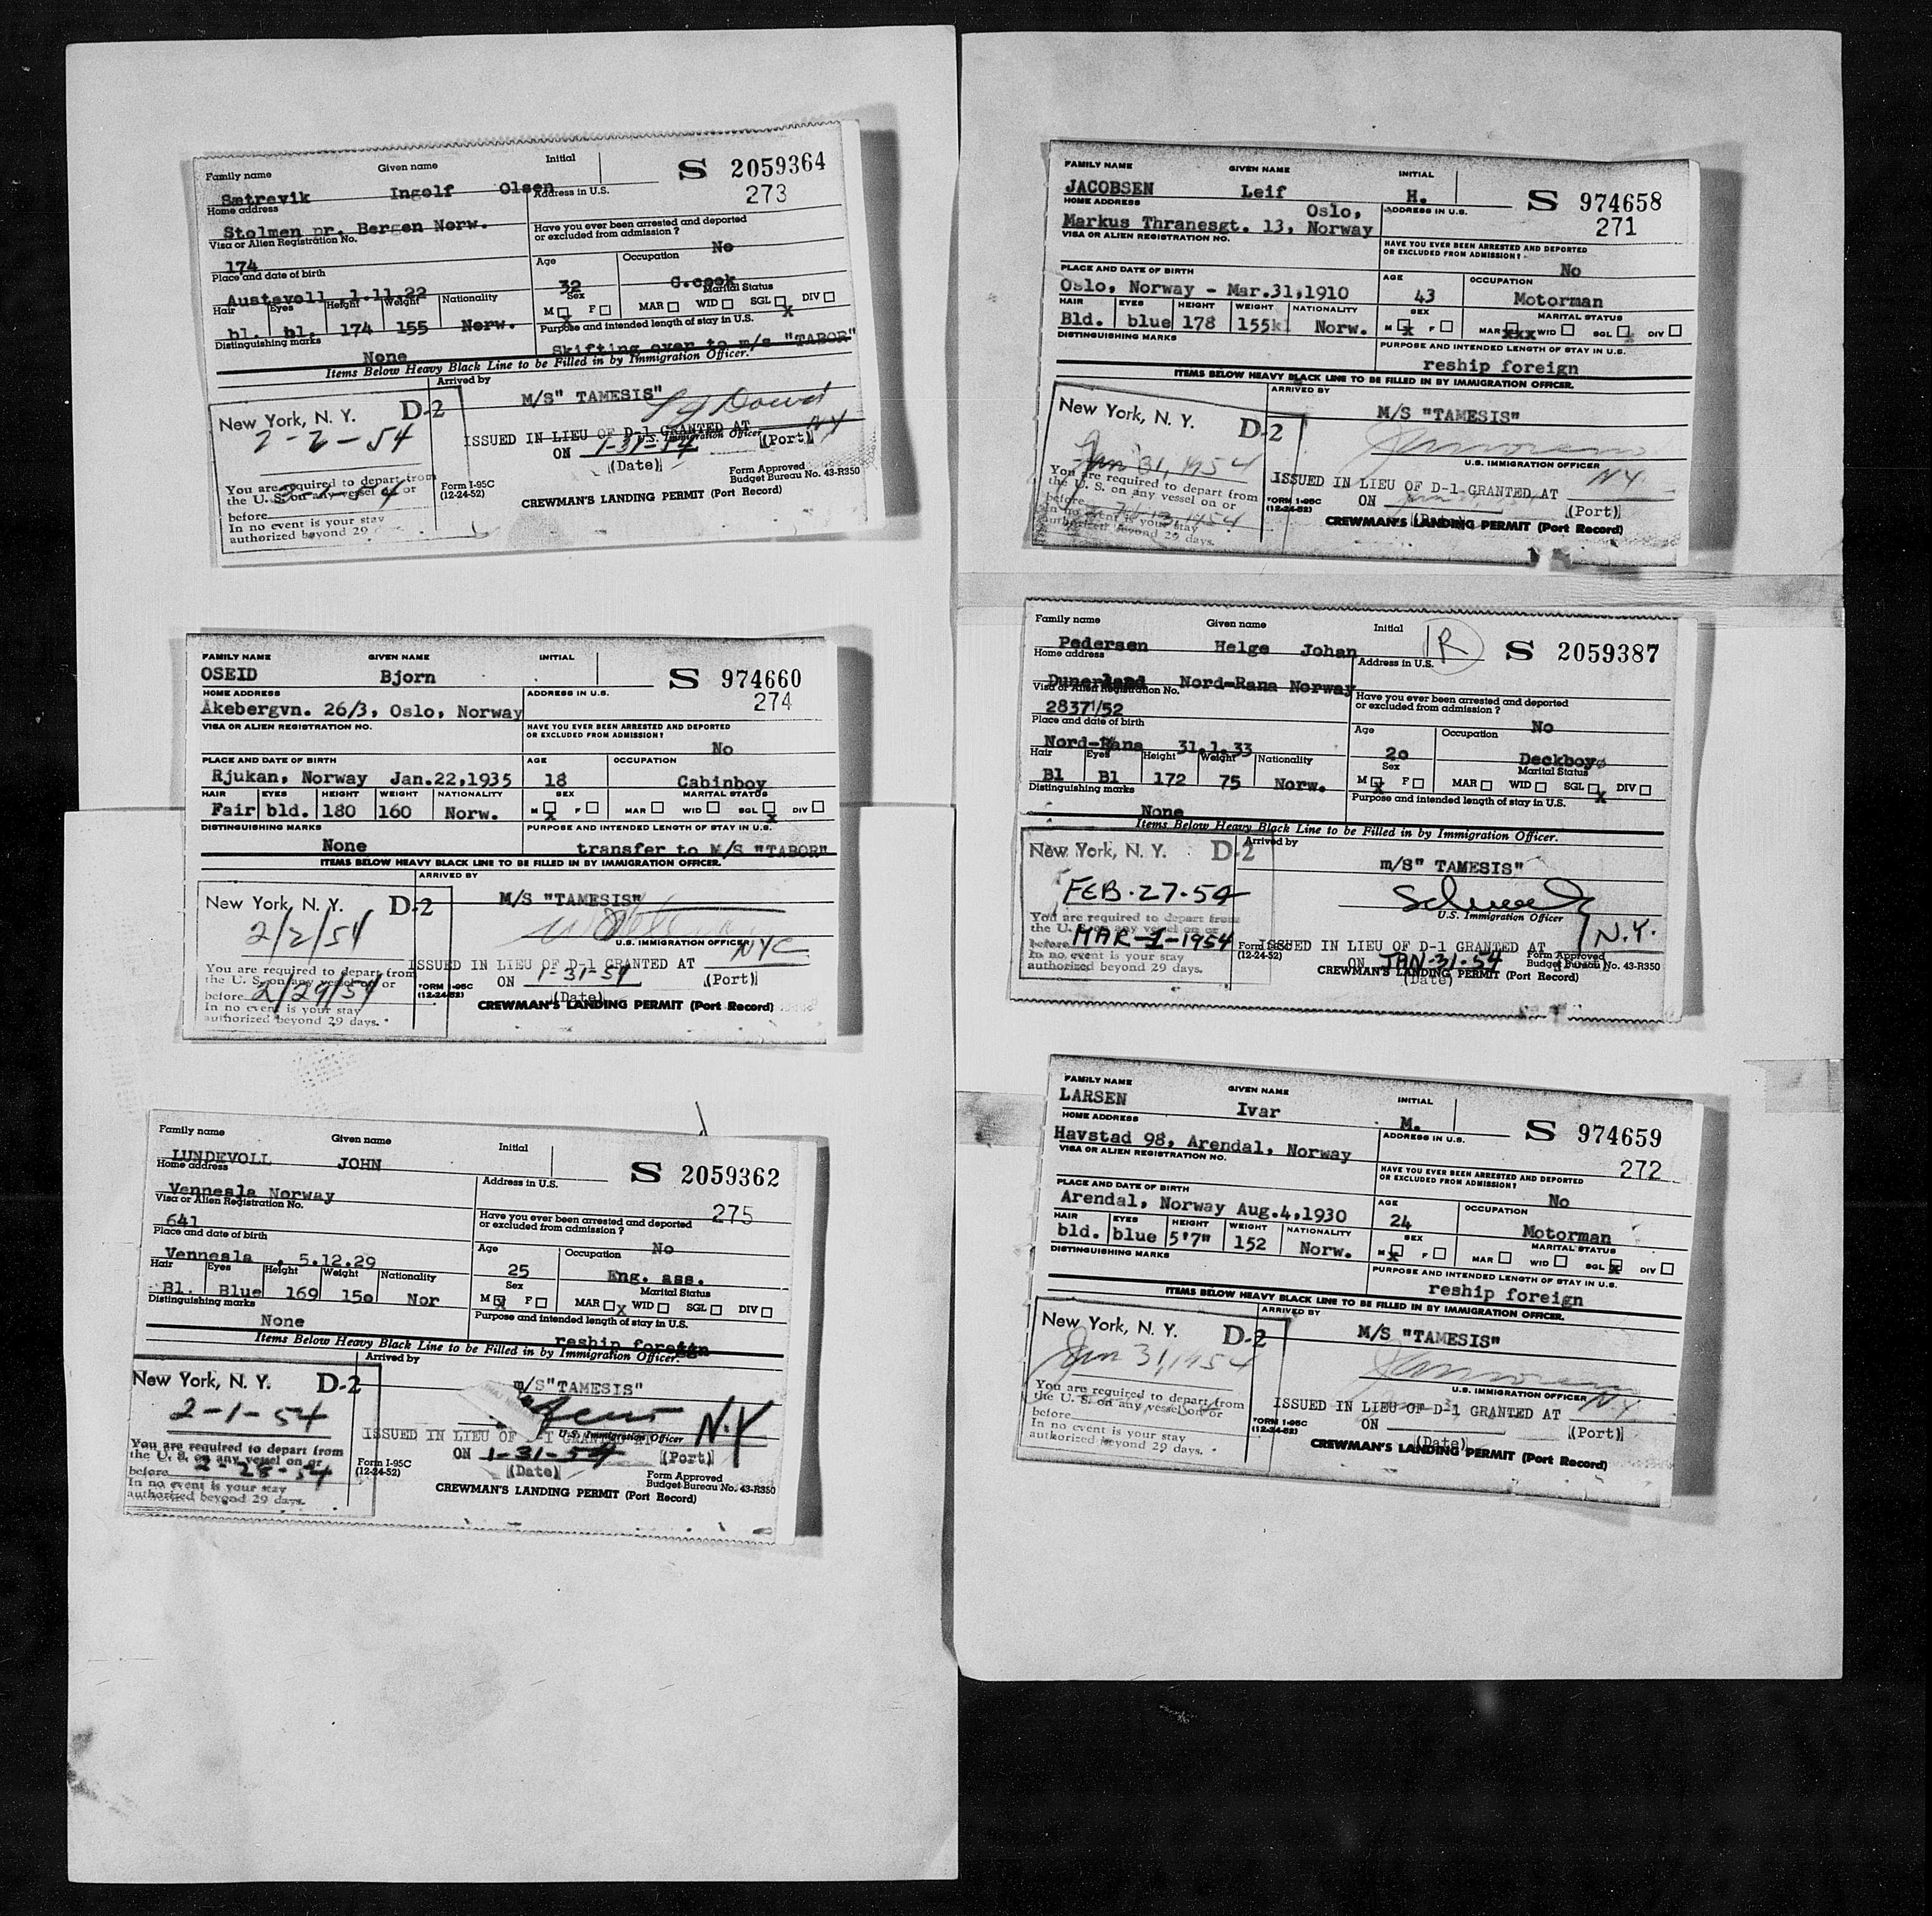 Family name Given name Initial
S 2059364
Sætrevik Ingolf Olsen
273
Home address Address in U.S.
Stolmen pr. Bergen Norw.
Visa or Alien Registration No.
Have you ever been arrested and deported
or excluded from admission ?
No
174
Place and date of birth
Age Occupation
Austevoll 1.11.22
32 C.cook
Hair Eyes Height Weight Nationality
Sex Marital Status
M F MAR WID SGL DIV
x x
bl. bl. 174 155 Norw.
Distinguishing marks
Purpose and intended length of stay in U.S.
None
Skifting over to m/s "TABOR"
Items Below Heavy Black Line to be Filled in by Immigration Officer.
Arrived by
M/S" TAMESIS"
New York, N. Y. D-2
2-2-54
ISSUED IN LIEU OF D-1 GRANTED AT NY
U.S. Immigration Officer
ON 1-31-54 (Port)
(Date)
You are required to depart from
the U. S. on any vessel on or
before
In no event is your stay
authorized beyond 29
Form I-95C
(12-24-52)
Form Approved
Budget Bureau No. 43-R350
CREWMAN'S LANDING PERMIT (Port Record)
FAMILY NAME GIVEN NAME INITIAL
OSEID Bjorn
S 974660
274
HOME ADDRESS ADDRESS IN U.S.
Åkebergvn. 26/3, Oslo, Norway
VISA OR ALIEN REGISTRATION NO.
HAVE YOU EVER BEEN ARRESTED AND DEPORTED
OR EXCLUDED FROM ADMISSION ?
No
PLACE AND DATE OF BIRTH AGE OCCUPATION
Rjukan, Norway Jan.22,1935 18 Cabinboy
HAIR EYES HEIGHT WEIGHT NATIONALITY SEX MARITAL STATUS
Fair bld. 180 160 Norw.
M F MAR WID SGL DIV
x x
DISTINGUISHING MARKS PURPOSE AND INTENDED LENGTH OF STAY IN U.S.
None transfer to M/S "TABOR"
ITEMS BELOW HEAVY BLACK LINE TO BE FILLED IN BY IMMIGRATION OFFICER.
ARRIVED BY
M/S "TAMESIS"
New York, N. Y. D-2
2/2/54
U.S. IMMIGRATION OFFICER
ISSUED IN LIEU OF D-1 GRANTED AT NYC
ON 1-31-54 (Port)
(Date)
You are required to depart from
the U. S. on any vessel on or
before 2/29/54
In no event is your stay
authorized beyond 29 days.
FORM I-95C
(12-24-52)
CREWMAN'S LANDING PERMIT (Port Record)
Family name Given name Initial
LUNDEVOLL JOHN
S 2059362
275
Home address Address in U.S.
Vennesla Norway
Visa or Alien Registration No.
Have you ever been arrested and deported
or excluded from admission ?
No
641
Place and date of birth
Age Occupation
Vennesla , 5.12.29
25 Eng. ass.
Hair Eyes Height Weight Nationality
Sex Marital Status
Bl. Blue 169 15o Nor
M F MAR WID SGL DIV
x x
Distinguishing marks
Purpose and intended length of stay in U.S.
None
reship foreign
Items Below Heavy Black Line to be Filled in by Immigration Officer.
Arrived by
m/S"TAMESIS"
New York, N. Y. D-2
2-1-54
ISSUED IN LIEU OF
U.S. Immigration Officer
N.Y
ON 1-31-54 (Port)
(Date)
You are required to depart from
the U. S. on any vessel on or
before 2-28-54
In no event is your stay
authorized beyond 29 days.
Form I-95C
(12-24-52)
Form Approved
Budget Bureau No. 43-R350
CREWMAN'S LANDING PERMIT (Port Record)
FAMILY NAME GIVEN NAME INITIAL
JACOBSEN Leif H.
S 974658
271
HOME ADDRESS ADDRESS IN U.S.
Oslo,
Markus Thranesgt. 13, Norway
VISA OR ALIEN REGISTRATION NO.
HAVE YOU EVER BEEN ARRESTED AND DEPORTED
OR EXCLUDED FROM ADMISSION ?
No
PLACE AND DATE OF BIRTH AGE OCCUPATION
Oslo, Norway - Mar.31,1910 43 Motorman
HAIR EYES HEIGHT WEIGHT NATIONALITY SEX MARITAL STATUS
Bld. blue 178 155kl Norw.
M F MAR WID SGL DIV
x xxx
DISTINGUISHING MARKS PURPOSE AND INTENDED LENGTH OF STAY IN U.S.
reship foreign
ITEMS BELOW HEAVY BLACK LINE TO BE FILLED IN BY IMMIGRATION OFFICER.
ARRIVED BY
M/S "TAMESIS"
New York, N. Y. D-2
Jan 31, 1954
U.S. IMMIGRATION OFFICER
ISSUED IN LIEU OF D-1 GRANTED AT NY
ON (Port)
(Date)
You are required to depart from
the U. S. on any vessel on or
before
In no event is your stay
authorized beyond 29 days.
FORM I-95C
(12-24-52)
CREWMAN'S LANDING PERMIT (Port Record)
Family name Given name Initial
R
Pedersen Helge Johan
S 2059387
Home address Address in U.S.
Dunerland Nord-Rana Norway
Visa or Alien Registration No.
Have you ever been arrested and deported
or excluded from admission ?
No
28371/52
Place and date of birth
Age Occupation
Nord-Rana 31.1.33
2o Deckboy
Hair Eyes Height Weight Nationality
Sex Marital Status
Bl Bl 172 75 Norw.
M F MAR WID SGL DIV
x x
Distinguishing marks
Purpose and intended length of stay in U.S.
None
Items Below Heavy Black Line to be Filled in by Immigration Officer.
Arrived by
m/S" TAMESIS"
New York, N. Y. D-2
FEB-27-54
U.S. Immigration Officer
ISSUED IN LIEU OF D-1 GRANTED AT N.Y.
ON JAN-31-54
(Date)
You are required to depart from
the U. S. on any vessel on or
before MAR-1-1954
In no event is your stay
authorized beyond 29 days.
Form I-95C
(12-24-52)
Form Approved
Budget Bureau No. 43-R350
CREWMAN'S LANDING PERMIT (Port Record)
FAMILY NAME GIVEN NAME INITIAL
LARSEN Ivar M.
S 974659
272
HOME ADDRESS ADDRESS IN U.S.
Havstad 98, Arendal, Norway
VISA OR ALIEN REGISTRATION NO.
HAVE YOU EVER BEEN ARRESTED AND DEPORTED
OR EXCLUDED FROM ADMISSION ?
No
PLACE AND DATE OF BIRTH AGE OCCUPATION
Arendal, Norway Aug.4,1930 24 Motorman
HAIR EYES HEIGHT WEIGHT NATIONALITY SEX MARITAL STATUS
bld. blue 5'7" 152 Norw.
M F MAR WID SGL DIV
x x
DISTINGUISHING MARKS PURPOSE AND INTENDED LENGTH OF STAY IN U.S.
reship foreign
ITEMS BELOW HEAVY BLACK LINE TO BE FILLED IN BY IMMIGRATION OFFICER.
ARRIVED BY
M/S "TAMESIS"
New York, N. Y. D-2
Jan 31, 1954
U.S. IMMIGRATION OFFICER
ISSUED IN LIEU OF D-1 GRANTED AT N.Y.
ON (Port)
(Date)
You are required to depart from
the U. S. on any vessel on or
before
In no event is your stay
authorized beyond 29 days.
FORM I-95C
(12-24-52)
CREWMAN'S LANDING PERMIT (Port Record)